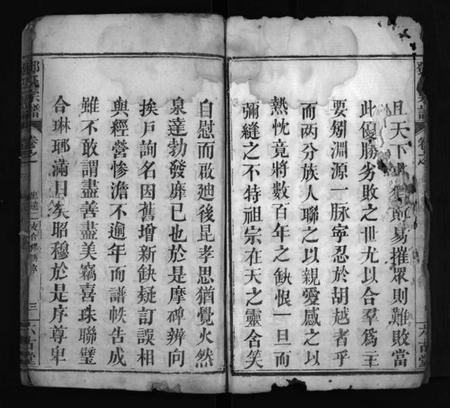 且天下
易摧眾則難敗當
此優勝劣敗之世尤以合羣為主
要矧淵源一脉寧忍於胡越者乎
而兩分族人聯之以親愛感之以
熱忱竟將數百年之缺恨一旦而
彌縫之不特祖宗在天之靈含笑
自慰而啟廸後昆孝思猶覺火然
泉達勃發靡已也於是摩碑辨向
挨戶詢名因舊增新缺疑訂誤相
與經營慘澹不逾年而譜帙告成
雖不敢謂盡善盡美竊喜珠聯璧
合琳瑯滿目矣昭穆於是序尊卑
宗譜
卷之一
三
六古堂